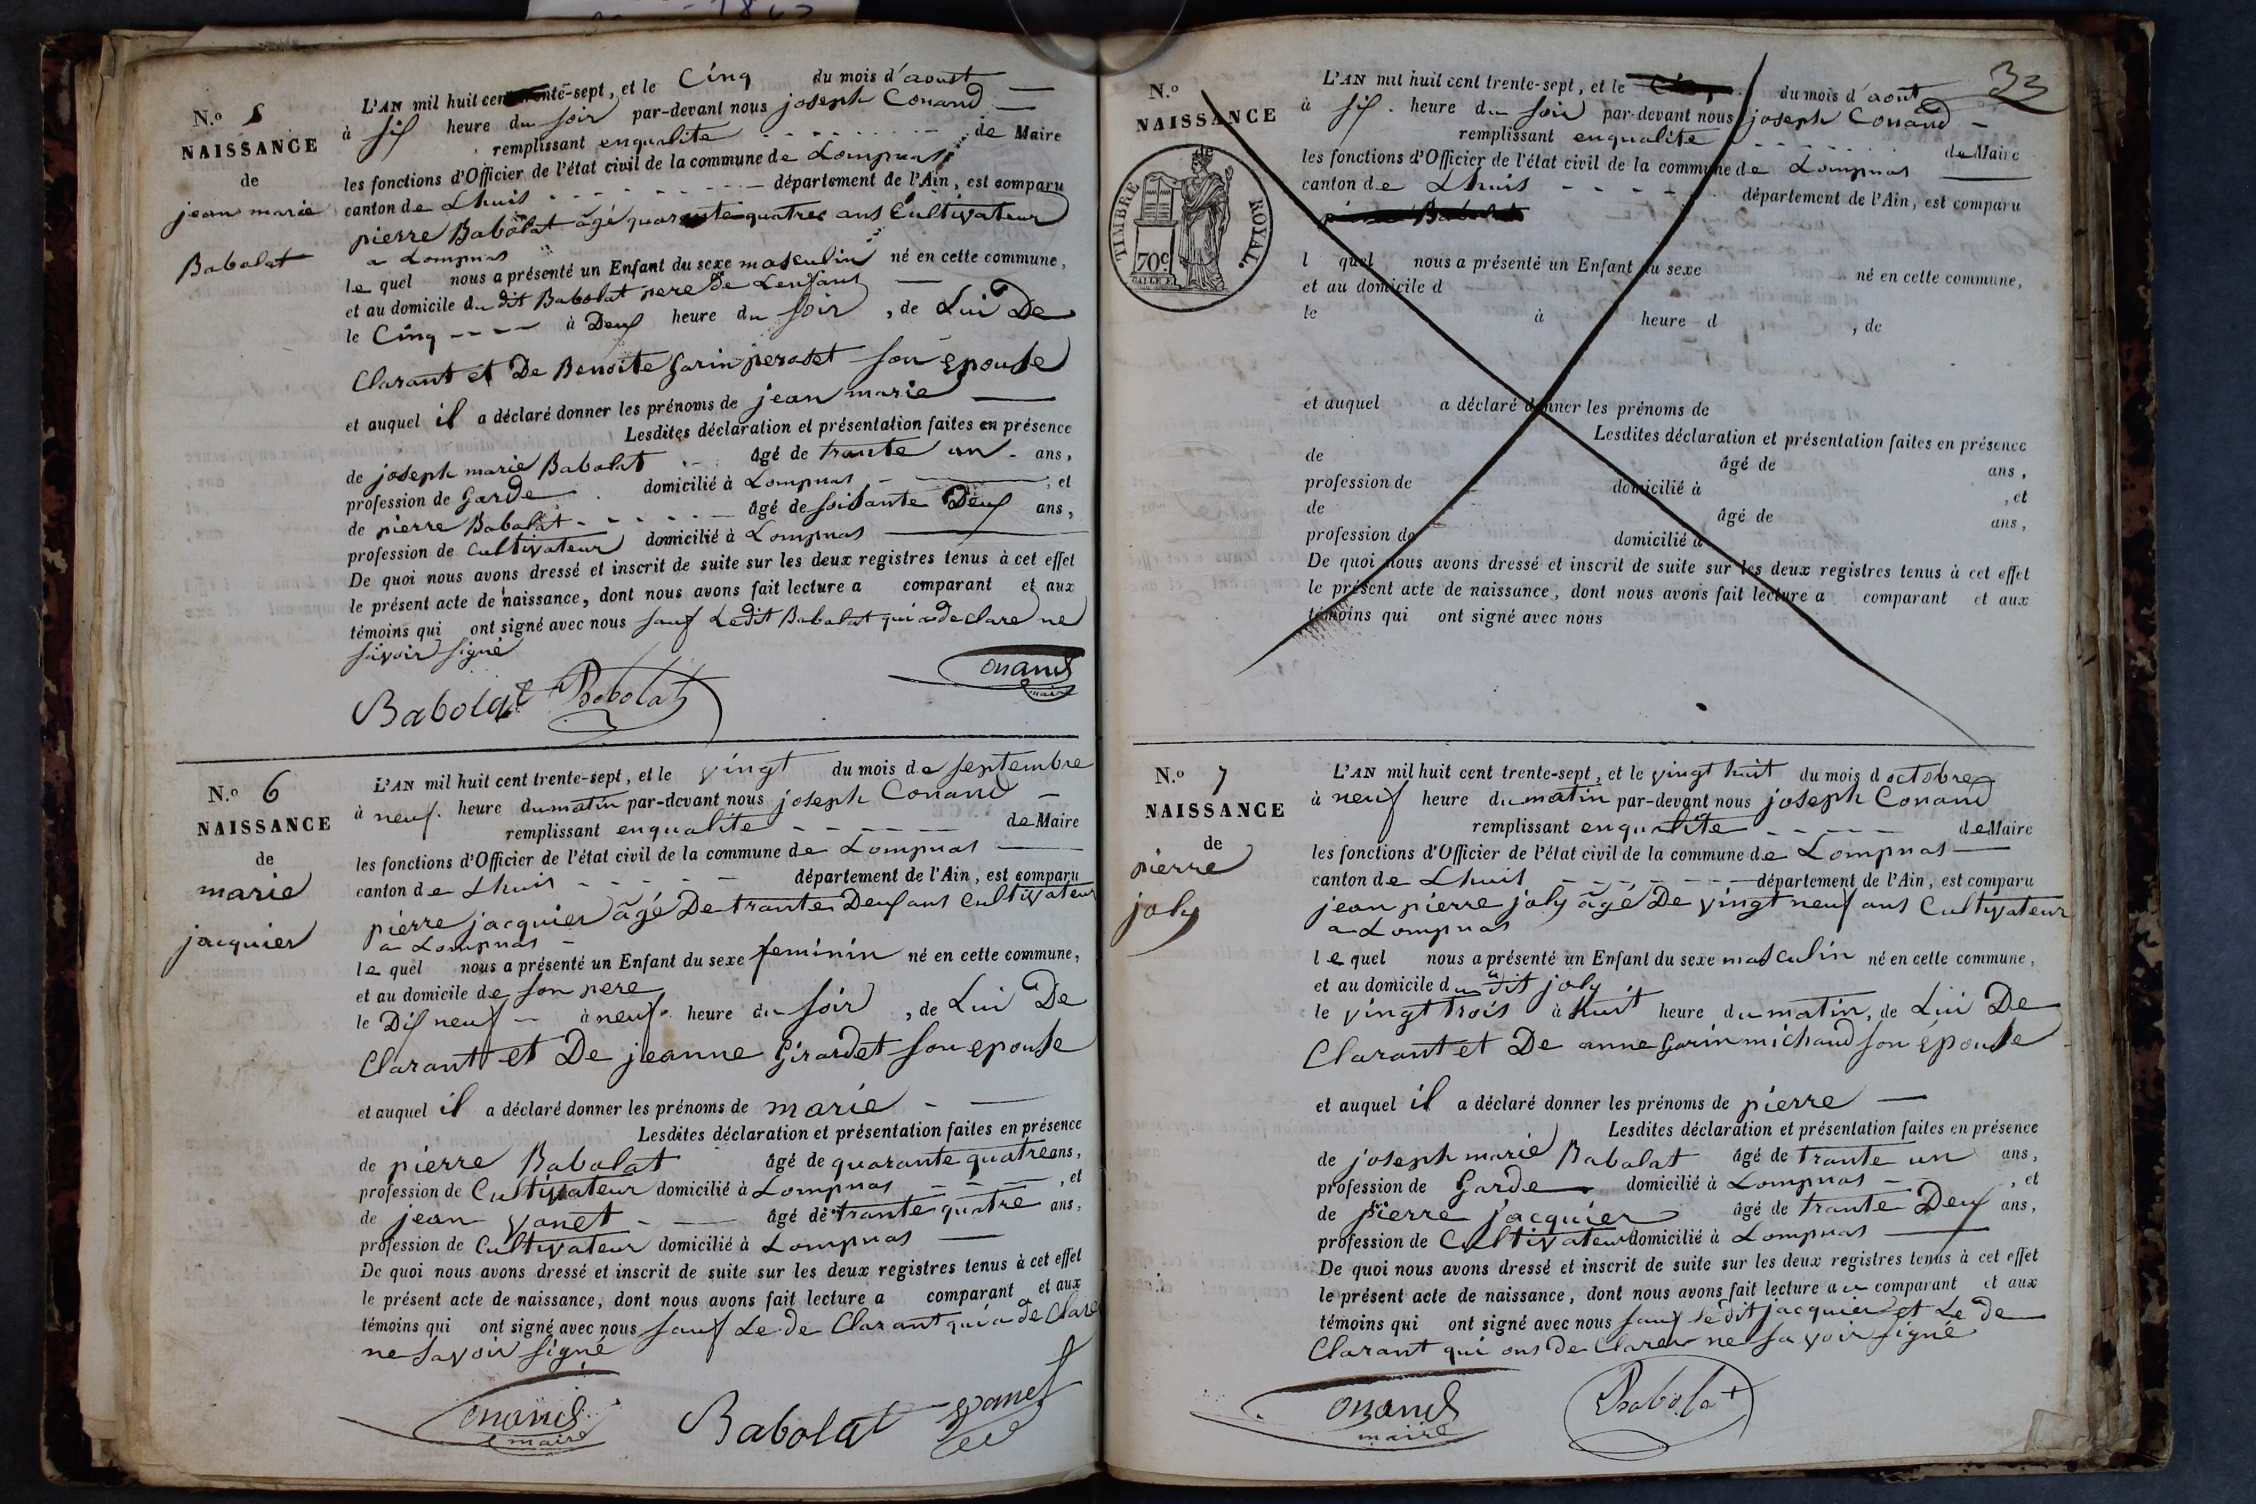 N.o 5
NAISSANCE
de
jean marie
Babolat
L'AN mil huit cent trente-sept, et le Cinq du mois d'aoust
à six heure du soir par-devant nous joseph Conand
remplissant enqualite de Maire
les fonctions d'Officier de l'état civil de la commune de Lompnas
canton de Lhuis département de l'Ain, est comparu
pierre Babolat âgé quarante quatres ans Cultivateur
a Lompnas
le quel nous a présenté un Enfant du sexe masculin né en cette commune,
et au domicile du dit Babolat pere de Lenfant
le Cinq à Deux heure du soir, de Lui De
Clarant et De Benoite Garin perotet son epouse
et auquel il a déclaré donner les prénoms de jean marie
Lesdites déclaration et présentation faites en présence
de joseph marie Babolat âgé de trante un ans,
profession de Garde domicilié à Lompnas, et
de pierre Babolat âgé de soisante Deux ans,
profession de Cultivateur domicilié à Lompnas
De quoi nous avons dressé et inscrit de suite sur les deux registres tenus à cet effet
le présent acte de naissance, dont nous avons fait lecture a comparant et aux
témoins qui ont signé avec nous sauf Ledit Babolat qui a declare ne
savoir signé
Babolat Babolat Conand
maire
N.o 6
NAISSANCE
de
marie
jacquier
L'AN mil huit cent trente-sept, et le vingt du mois de septembre
à neuf heure du matin par-devant nous joseph Conand
remplissant enqualite de Maire
les fonctions d'Officier de l'état civil de la commune de Lompnas
canton de Lhuis département de l'Ain, est comparu
pierre jacquier âgé De trante Deux ans Cultivateur
a Lompnas
le quel nous a présenté un Enfant du sexe feminin né en cette commune,
et au domicile de son pere
le Dix neuf à neuf heure du soir, de Lui De
Clarant et De jeanne Girardet son epouse
et auquel il a déclaré donner les prénoms de marie
Lesdites déclaration et présentation faites en présence
de pierre Babolat âgé de quarante quatre ans,
profession de Cultivateur domicilié à Lompnas, et
de jean yanet âgé de trante quatre ans,
profession de Cultivateur domicilié à Lompnas
De quoi nous avons dressé et inscrit de suite sur les deux registres tenus à cet effet
le présent acte de naissance, dont nous avons fait lecture a comparant et aux
témoins qui ont signé avec nous sauf Le de Clarant qui a de Clare
ne savoir signé
Conand Babolat yanet
maire
33
N.o
NAISSANCE
TIMBRE ROYAL.
70c
L'AN mil huit cent trente-sept, et le du mois d'aout
à six heure du soir par-devant nous joseph Conand
remplissant enqualite de Maire
les fonctions d'Officier de l'état civil de la commune de Lompnas
canton de Lhuis département de l'Ain, est comparu
pierre Babolat
l quel nous a présenté un Enfant du sexe né en cette commune,
et au domicile d
le à heure d, de
et auquel a déclaré donner les prénoms de
Lesdites déclaration et présentation faites en présence
de âgé de ans,
profession de domicilié à, et
de âgé de ans,
profession de domicilié à
De quoi nous avons dressé et inscrit de suite sur les deux registres tenus à cet effet
le présent acte de naissance, dont nous avons fait lecture a comparant et aux
témoins qui ont signé avec nous
N.o 7
NAISSANCE
de
pierre
joly
L'AN mil huit cent trente-sept, et le vingt huit du mois d octobre
à neuf heure du matin par-devant nous joseph Conand
remplissant enqualite de Maire
les fonctions d'Officier de l'état civil de la commune de Lompnas
canton de Lhuis département de l'Ain, est comparu
jean pierre joly âgé De vingt neuf ans Cultivateur
a Lompnas
le quel nous a présenté un Enfant du sexe masculin né en cette commune,
et au domicile du dit joly
le vingt trois à huit heure du matin, de Lui De
Clarant et De anne Garin michaud son épouse
et auquel il a déclaré donner les prénoms de pierre
Lesdites déclaration et présentation faites en présence
de joseph marie Babolat âgé de trante un ans,
profession de Garde domicilié à Lompnas, et
de pierre jacquier âgé de trante Deux ans,
profession de Cultivateur domicilié à Lompnas
De quoi nous avons dressé et inscrit de suite sur les deux registres tenus à cet effet
le présent acte de naissance, dont nous avons fait lecture au comparant et aux
témoins qui ont signé avec nous sauf le dit jacquier et Le de
Clarant qui ons de Clarer ne savoir signé
Conand Babolat
maire